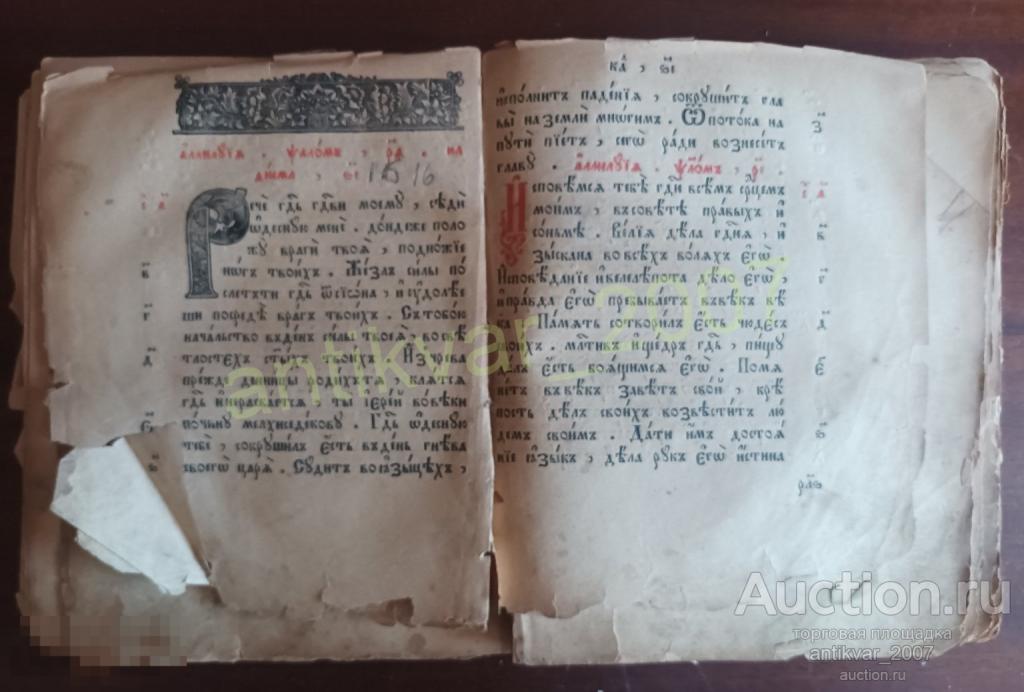 а҆ллилꙋїа . ѱало́мъ , р҃ѳ . ка
ѳи́сма , и҃і 18 16
Речѐ гдⷭ҇ь гдⷭ҇ви моемꙋ̀ , сѣдѝ
ѡ҆деснꙋ́ю менѐ . до́ндеже поло
жꙋ̀ врагѝ твоѧ̀ , подно́жїе
но́гъ твои́хъ . Же́злъ си́лы по́
слетъ ти гдⷭ҇ь ѿ сїѡ́на , и҆ ѡ҆долѣ́
еши посредѣ̀ вра́гъ твои́хъ . Съ тобо́ю
нача́льство въ де́нь си́лы твоеѧ̀ , во свѣ
тлостехъ ст҃ы́хъ твои́хъ . И҆зчре́ва
пре́жде денни́цы роди́хъ тѧ , клѧ́тсѧ
гдⷭ҇ь и҆ нераска́етсѧ . ты̀ і҆ере́й во вѣ́ки
почи́нꙋ мелхиседе́ковꙋ . Гдⷭ҇ь ѡ҆деснꙋ́ю
тебѐ , сокрꙋши́лъ є҆́сть въ де́нь гнѣ́ва
своегѡ̀ царѧ̀ . Сꙋ́дитъ во ꙗ҆зы́цѣхъ ,
в҃
г҃
д҃
є҃
ѕ҃
ка , и҃і
и҆спо́лнитъ паде́нїѧ , сокрꙋши́тъ гла
вы̀ на землѝ мно́гимъ . Ѿ пото́ка на
пꙋтѝ пїе́тъ , сегѡ̀ ра́ди вознесе́тъ
главꙋ̀ . а҆ллилꙋ́їа . ѱло́мъ , р҃і .
И҆сповѣ́мсѧ тебѣ̀ гдⷭ҇и всѣ́мъ срⷣцемъ
мои́мъ , въ совѣ́те пра́выхъ и҆
со́ньмѣ . Ве́лїѧ дѣла̀ гдⷭ҇нѧ , и҆
зы́скана во всѣ́хъ во́лѧхъ є҆гѡ̀ .
И҆сповѣ́данїе и҆ велелѣ́пота дѣ́ло є҆гѡ̀ ,
и҆ пра́вда є҆гѡ̀ пребыва́етъ въ вѣ́къ вѣ
. Па́мѧть сотвори́лъ є҆́сть чюде́съ
свои́хъ . мл҃тивъ и҆ ще́дръ гдⷭ҇ь , пи́щꙋ
да́лъ є҆́сть боѧ́щимсѧ є҆гѡ̀ . Помѧ
не́тъ въ вѣ́къ завѣ́тъ сво́й . крѣ́
пость дѣ́лъ свои́хъ возвѣсти́тъ лю́
демъ свои́мъ . Да́ти и҆́мъ достоѧ́
нїе ꙗ҆зы́къ , дѣла̀ рꙋ́къ є҆гѡ̀ и҆́стина
з҃
в҃
г҃
д҃
є҃
ѕ҃
antikvar_2007
Auction.ru
торговая площадка
antikvar_2007
auction.ru